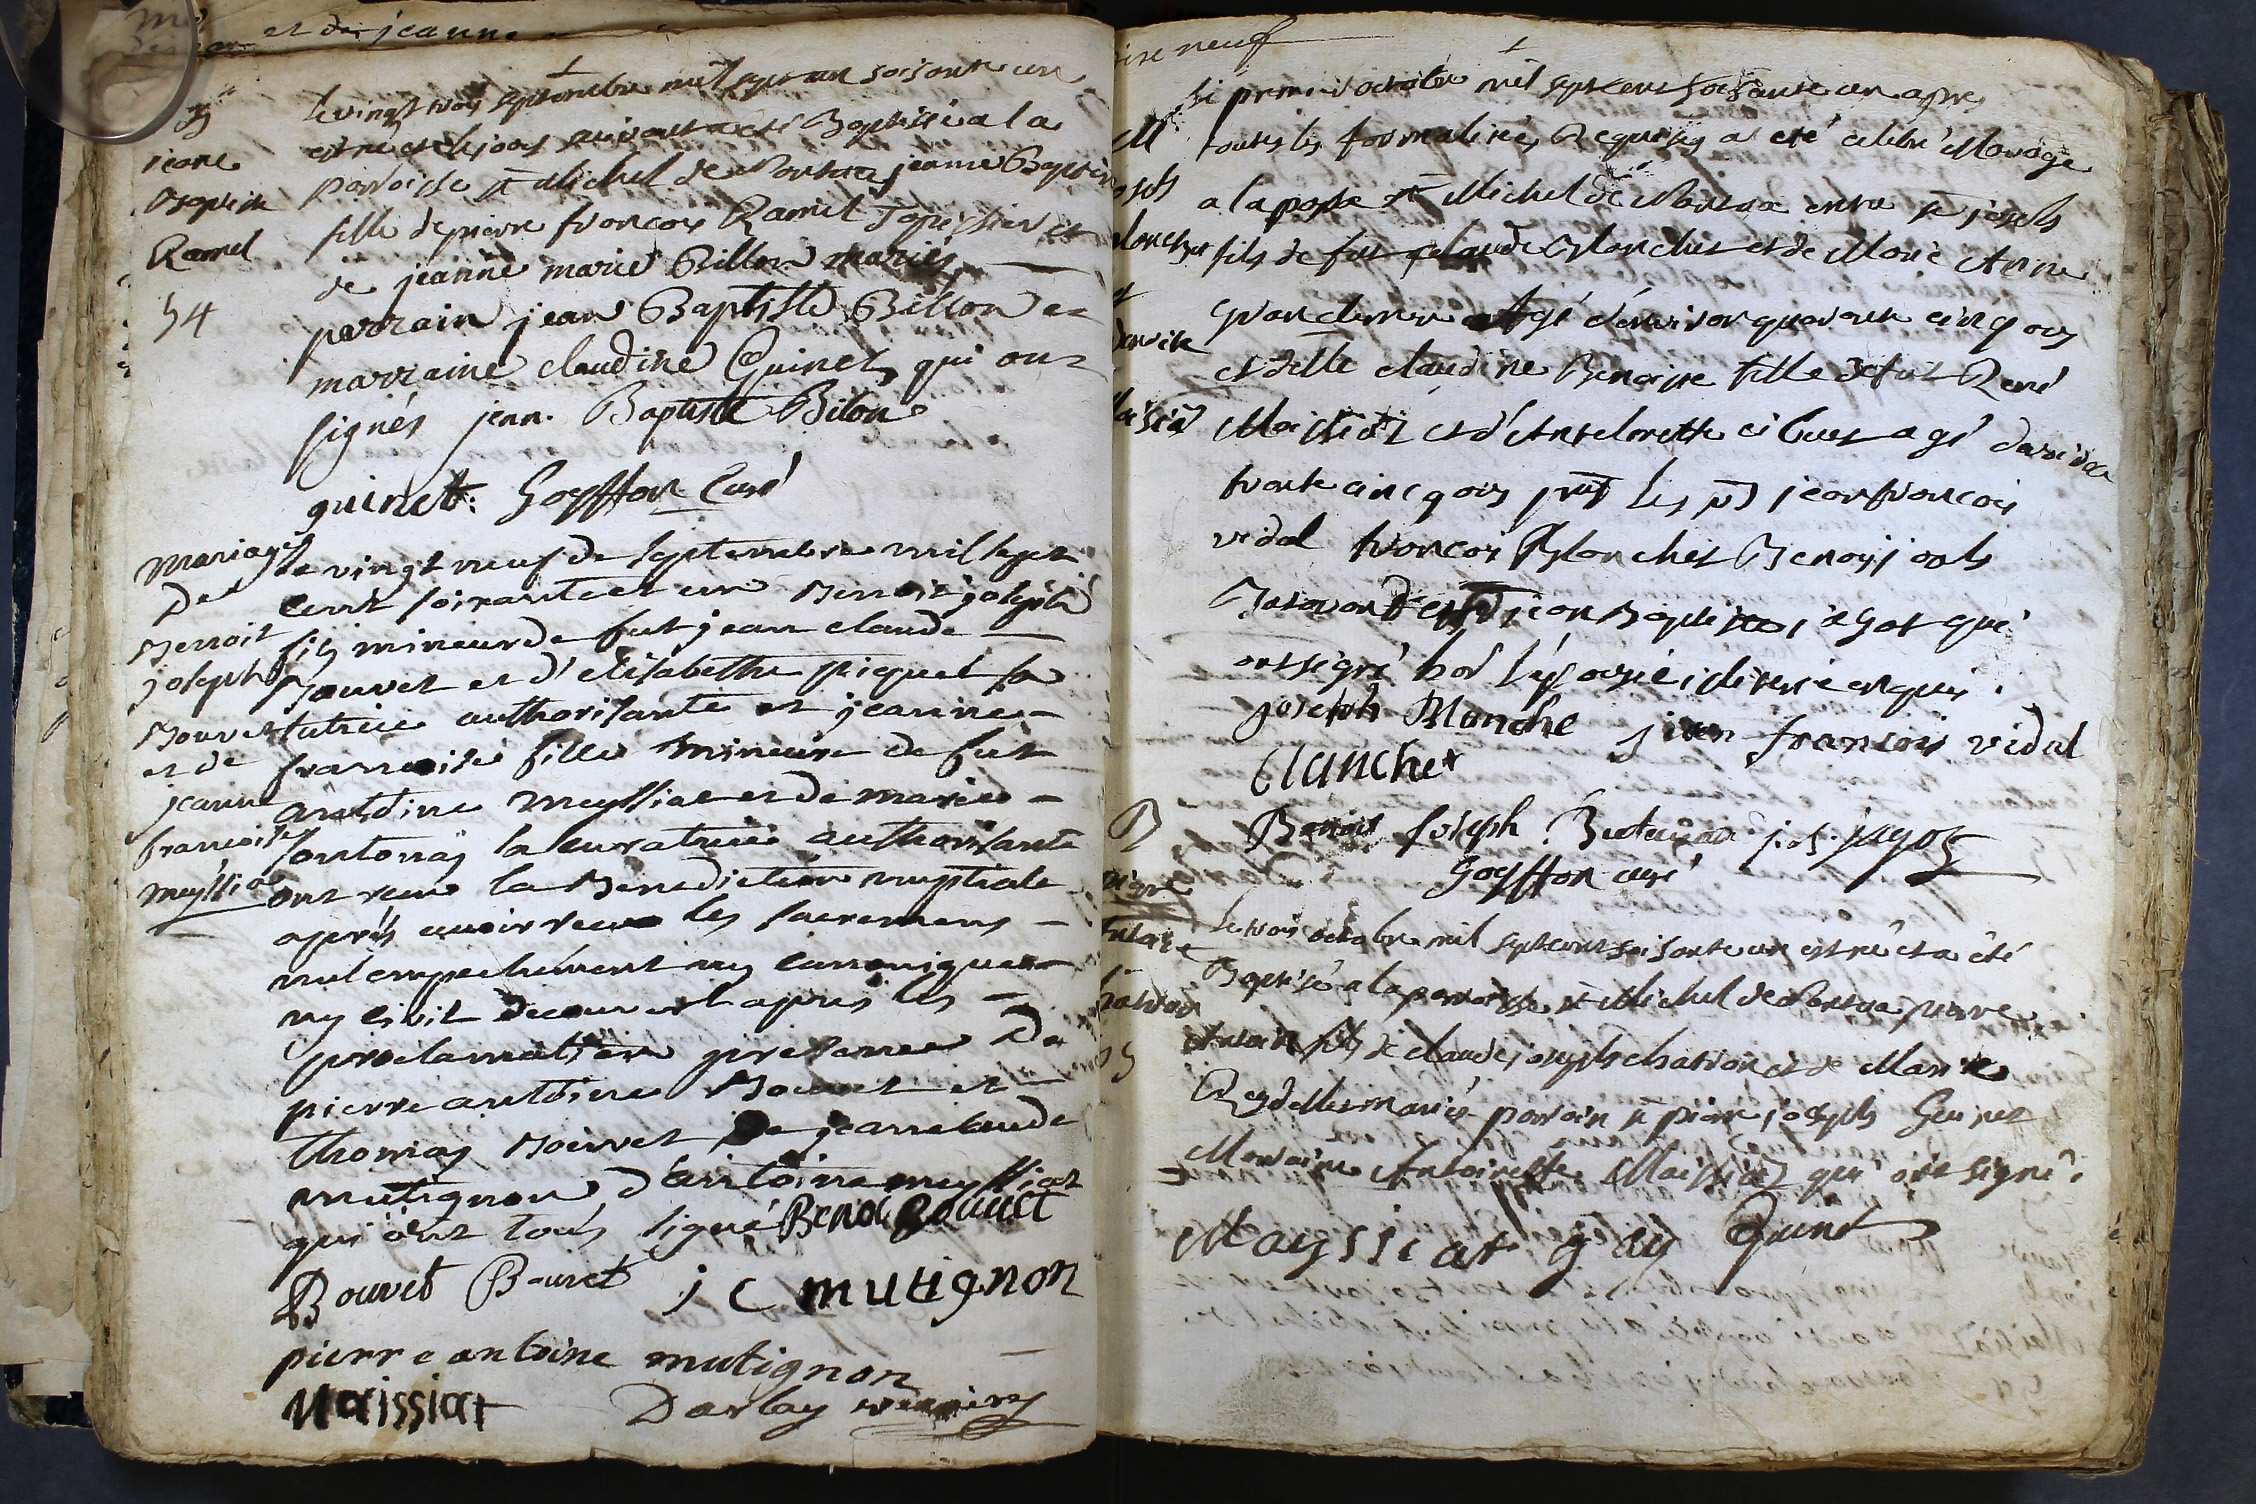 et de jeanne
jeane
Baptiste
Ramel
54
Le vingt trois septembre mil sept cen soisonte un
est né et le jour suivant a été Baptisé a la
parroisse st Michel de Nantua jeanne Baptiste
fille de pierre francois Ramel et
de jeanne marie Billon mariés
parrain jean Baptiste Billon et
marraine claudine Quinet, qui ont
signés jean Baptiste Bilon
quinet. Goyffon Curé
Mariage
De
Benoit
joseph
Bouvet
et de
jeanne
francoise
meyssiat
Le vingt neuf de septembre mil sept
cent soixante et un Benoit joseph
fils mineur de fut jean claude
Bouvet et d'elisabethe picquet sa
tutrice authorisante et jeanne
francoise fille mineure de fut
antoine meyssiat et de marie
sa curatrice authorisante
ont receu la Benediction nuptiale
aprés avoir receu les sacremens
nul empechément ny canonique
ny civil decouvert apres les
proclamation presence De
pierre antoine Bouvet et
thomas Bouvet De jean claude
mutignon d'antoine meyssiat
qui ont tous signé Benoi Bouvet
Bouvet Bouvet j c mutignon
pierre antoine mutignon
Maissiat Darlay vicaire
neuf
Le premier octobre mil sept cent soisante un apres
toutes les formalités Requises a eté celebré Mariage
a la parsse st Michel de Nantua entre sr joseph
fils de fut claude Blanchet et de Marie Anne
agé d'environ quarante cinq ans
et delle claudine Benoitte fille de fut René
Maissiat et d'Anthelmette agé d'environ
trante cinq ans pnt les srs jean francois
vidal francois Blanchet Benoit joseph
jean Baptiste jagot qui
ont signé
joseph Blanche jean francois vidal
Clanchet
Benoit joseph j.b. jagot
Goyffon curé
B
pierre
Antoine
Le trois octobre mil sept cent soisonte un est né et a été
Baptisé a la parroisse st Michel de Nantua pierre
Antoine fils de claude joseph et de Marie
mariés parrain sr pierre joseph
Marraine Antoinette Maissiat qui ont signé
Mayssiat